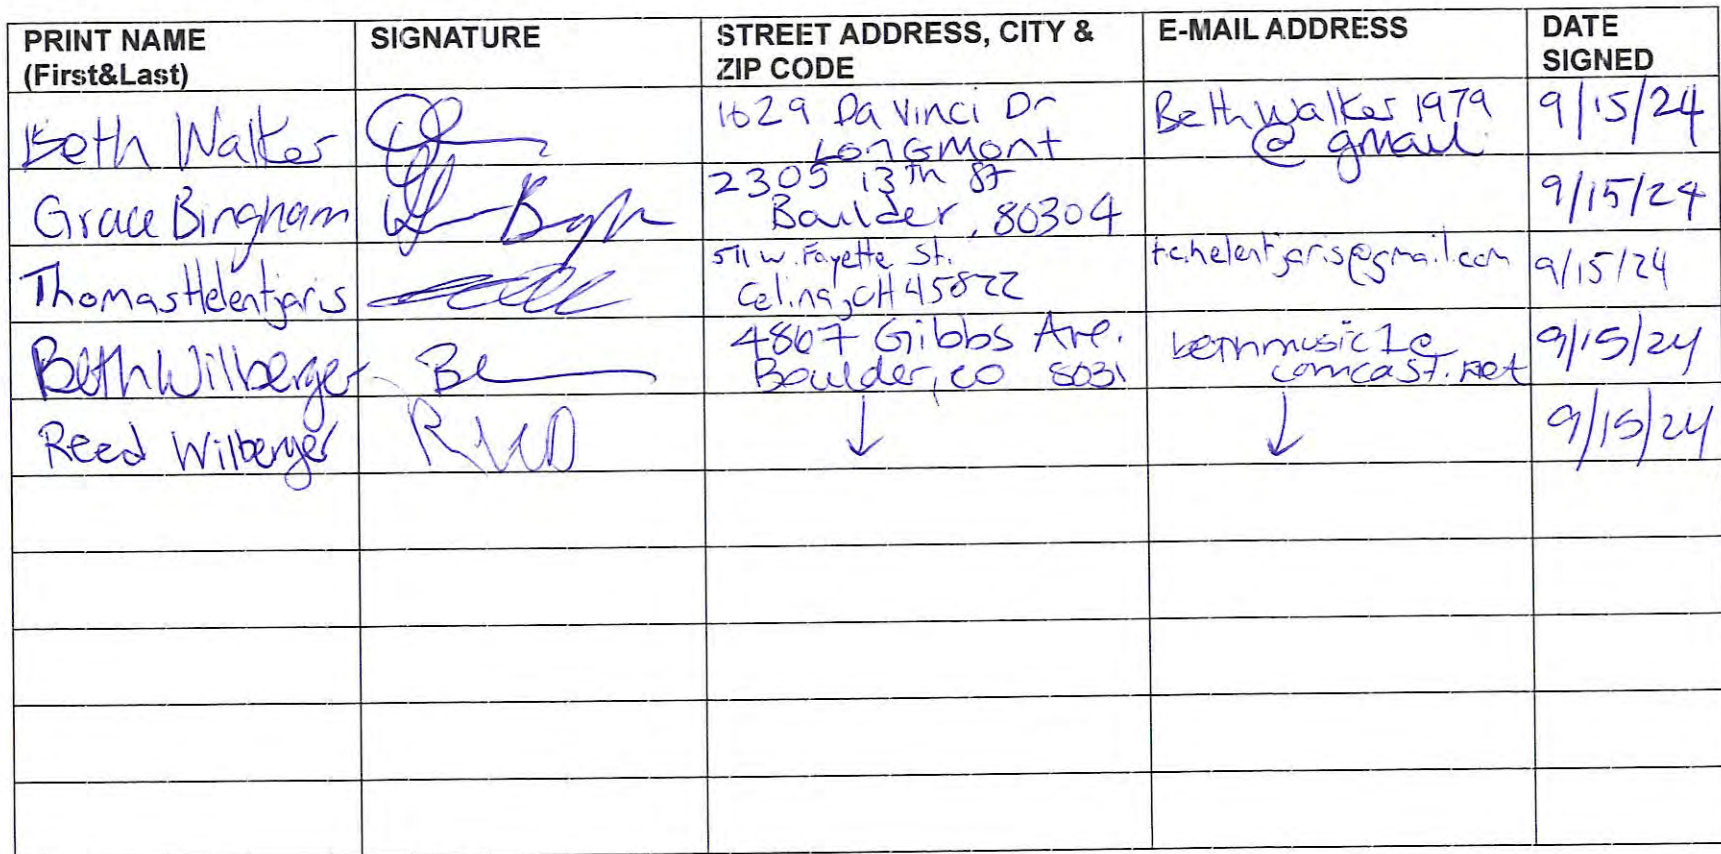 PRINT NAME (First&Last) SIGNATURE STREET ADDRESS, CITY & ZIP CODE E-MAIL ADDRESS DATE SIGNED
Beth Walker 1629 Da Vinci Dr Longmont BethWalker1979 @ gmail 9/15/24
Grace Bingham 2305 13th St Boulder, 80304 9/15/24
Thomas Helentjaris 511 W. Fayette St. Celina, OH 45822 t.c.helentjaris@gmail.com 9/15/24
Beth Wilberger 4867 Gibbs Ave. Boulder, CO 8031 bethmusic1@ comcast.net 9/15/24
Reed Wilberger ↓ ↓ 9/15/24